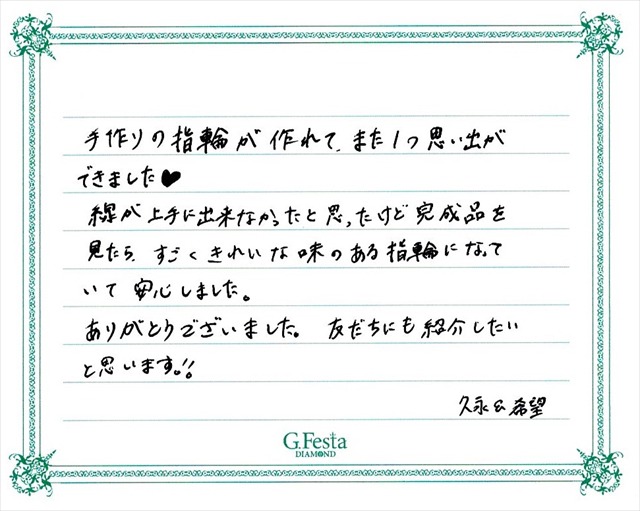 手作りの指輪が作れて、また1つ思い出が
できました♥
線が上手に出来なかったと思ったけど完成品を
見たら、すごくきれいな味のある指輪になって
いて安心しました。
ありがとうございました。友だちにも紹介したい
と思います!!
久永&希望
G.Festa
DIAMOND